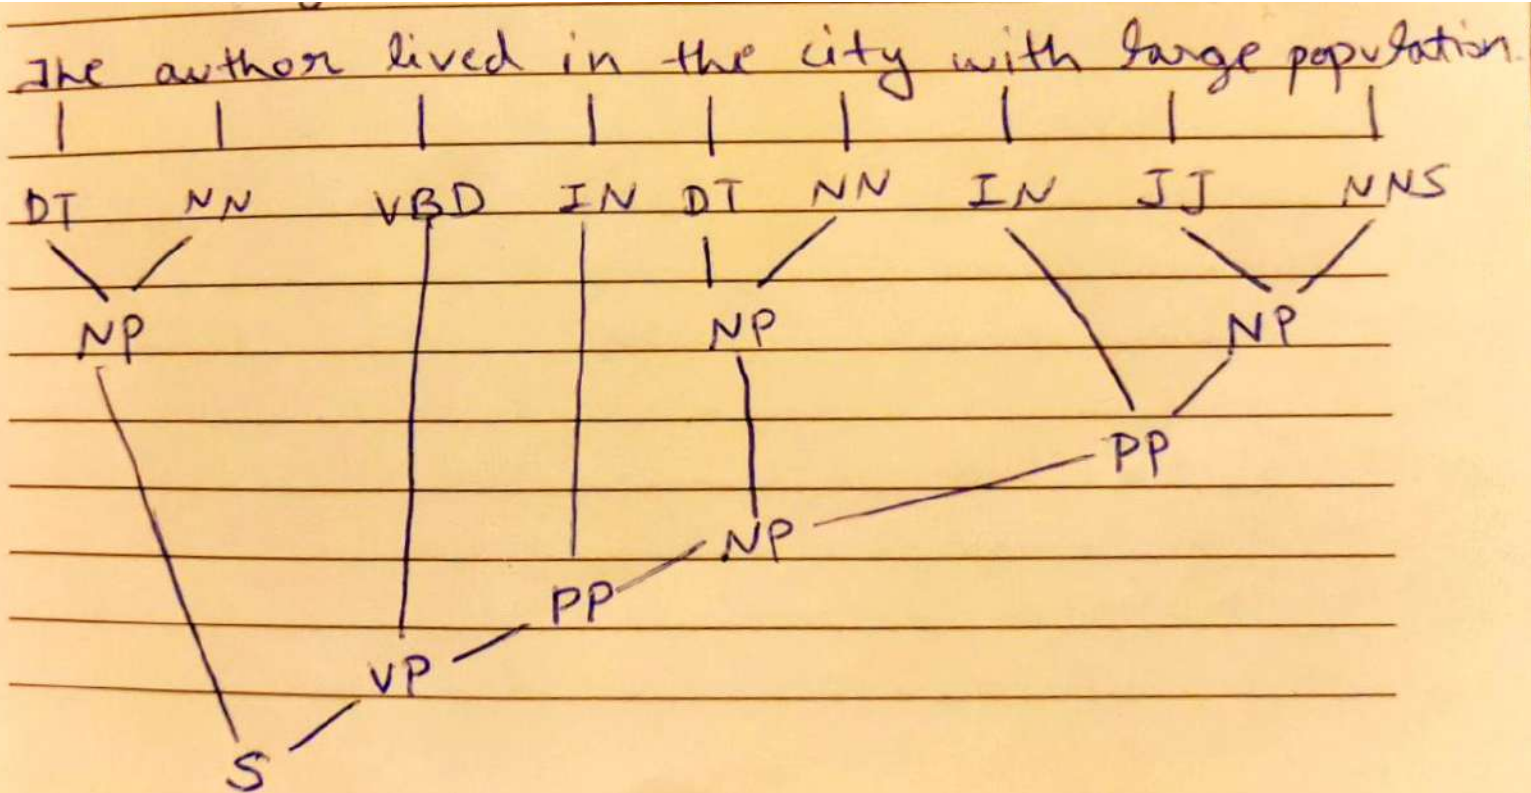 The author lived in the city with large population.
DT NN VBD IN DT NN IN JJ NNS
NP NP NP
PP
NP
PP
VP
S